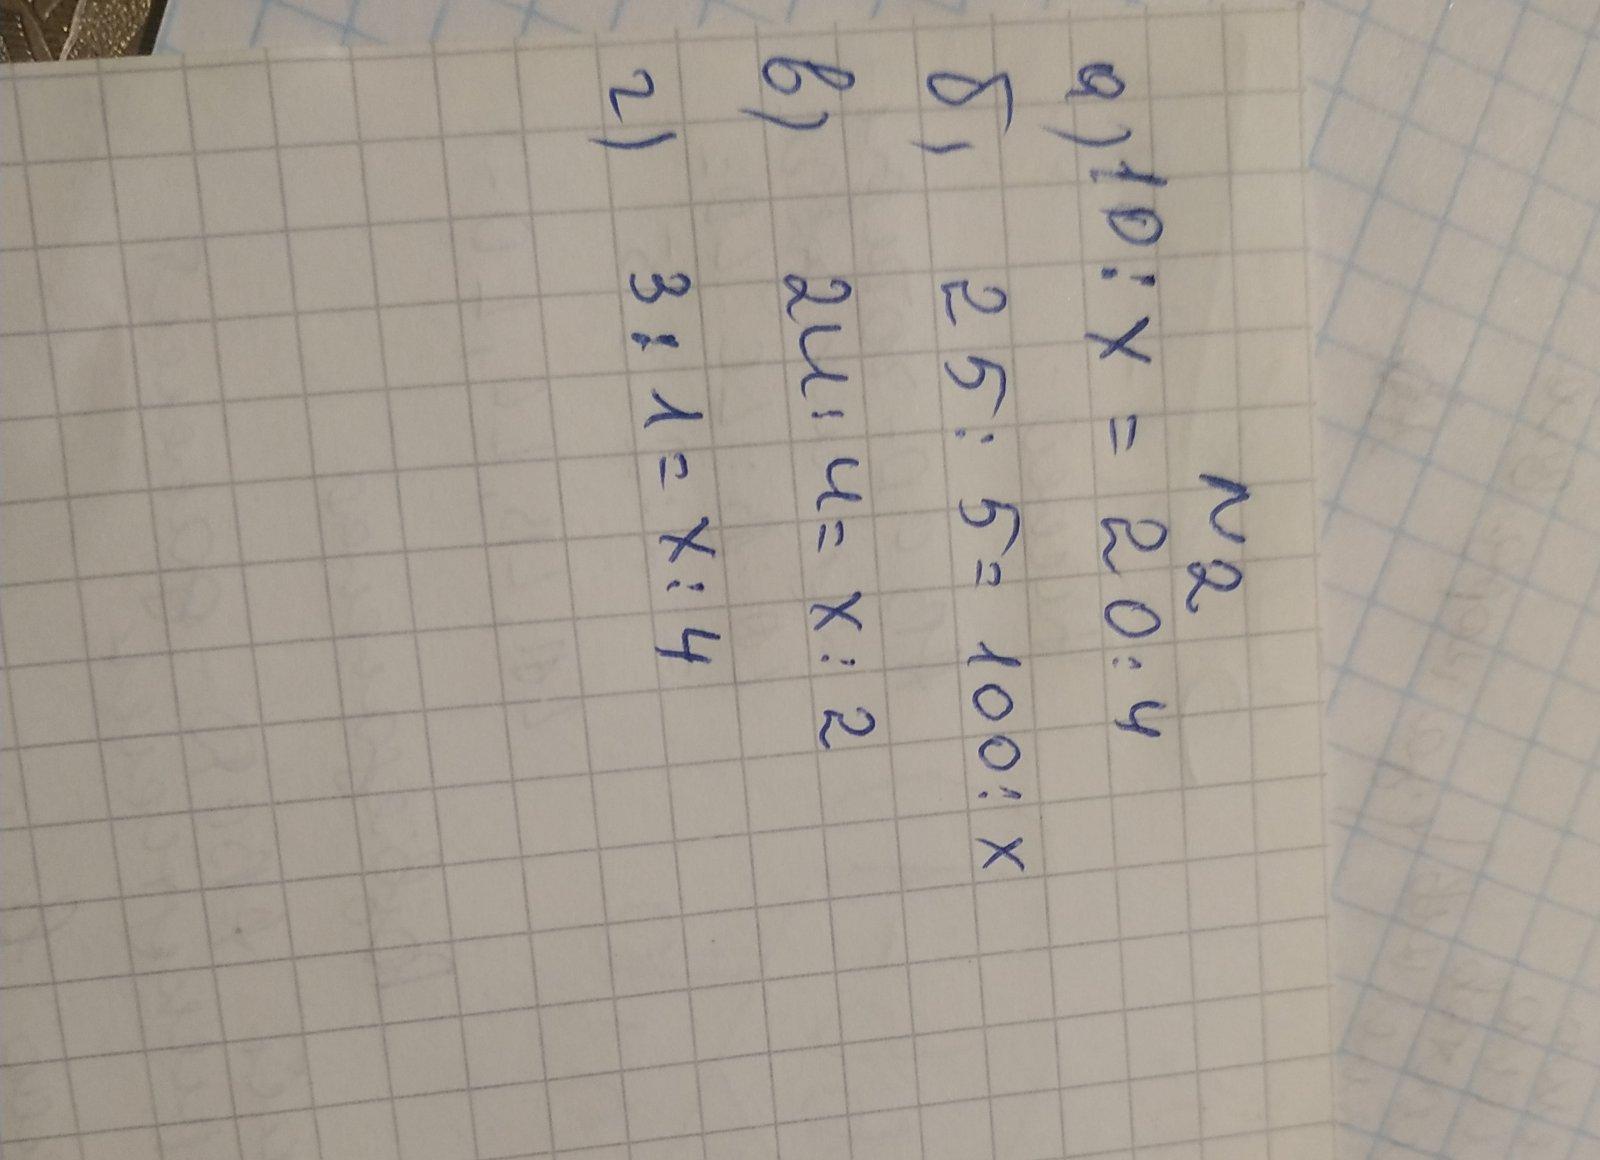 N2
а) 10 : x = 20 : 4
б) 25 : 5 = 100 : x
в) 24 : 4 = x : 2
г) 3 : 1 = x : 4